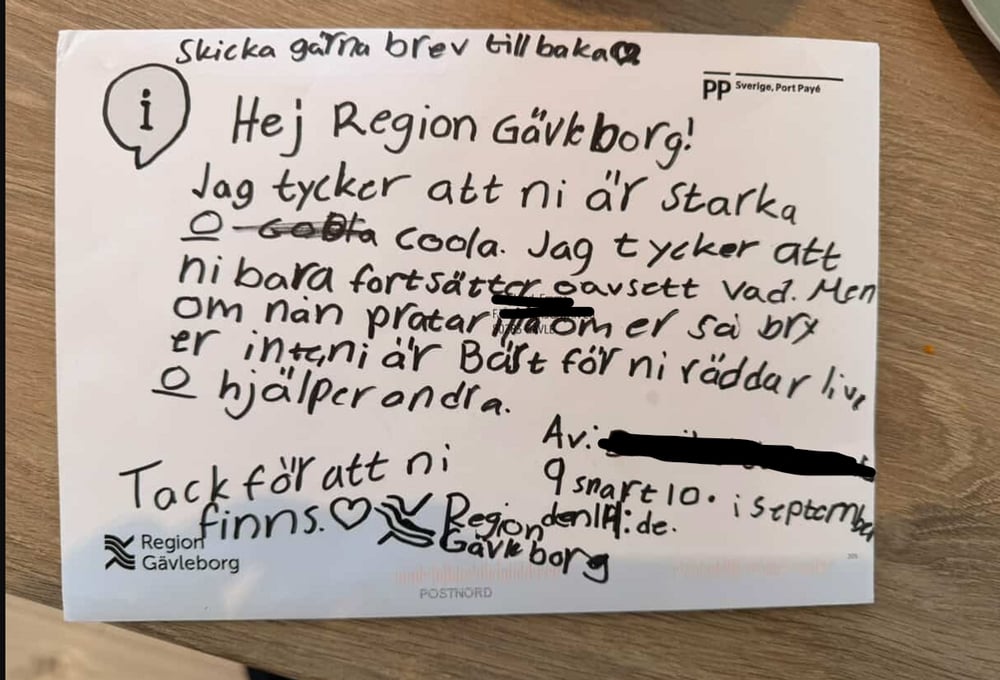 Skicka gärna brev tillbaka
i
PP Sverige, Port Payé
Hej Region Gävkborg!
Jag tycker att ni är starka
O coola. Jag tycker att
ni bara fortsätter oavsett vad. Men
om nån pratar om er så bry
er inte, ni är Bäst för ni räddar liv
O hjälper andra.
Av:
9 snart 10. i September
den 14:de.
Tack för att ni
finns.
Region
Gävkborg
Region
Gävleborg
POSTNORD